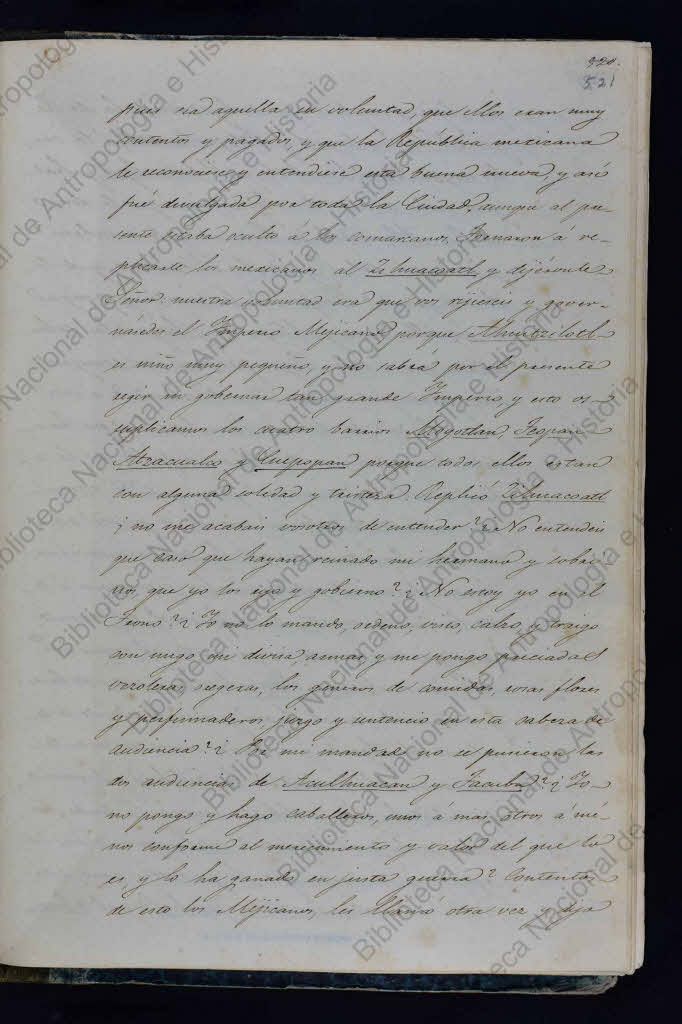 320.
521
pues era aquella su voluntad, que ellos eran muy
contentos y pagados, y que la República mexicana
le reconociese y entendiese esta buena nueva, y así
fué divulgada por toda la Ciudad, aunque al pre-
sente estaba oculto á los comarcanos. Tornaron á re-
plicarle los mexicanos al Zihuacoatl, y dijéronle
Señor: nuestra voluntad era que vos rijieseis y gover-
nárades el Imperio Mejicano porque Ahuitzilotl
es niño muy pequeño, y no sabrá por el presente
regir ni gobernar tan grande Imperio, y esto os
suplicamos los cuatro barrios Moyotlan, Teopan
Atzacualco y Cuepopan porque todos ellos estan
con alguna soledad y tristeza. Replicó Zihuacoatl
¿ no me acabais vosotros de entender? ¿ No entendeis
que caso que hayan reinado mi hermano y sobri-
nos, que yo los rijo y gobierno? ¿ No estoy yo en el
Trono? ¿ Yo no lo mando, ordeno, visto, calzo, y traigo
con migo mi divisa, armas, y me pongo preciadas
vezoleras, oregeras, los géneros de comidas, rosas flores
y perfumaderos, juzgo y sentencio en esta cabeza de
audiencia? ¿ Por mi mandado no se pusieron las
dos audiencias de Aculhuacan y Tacuba? ¿ Yo
no pongo y hago caballeros, unos á mas, otros á mé-
nos conforme al merecimiento y valor del que lo
es, y lo ha ganado en justa guerra? Contentos
de esto los Mejicanos, les llamó otra vez y dijo
Biblioteca Nacional de Antropología e Historia